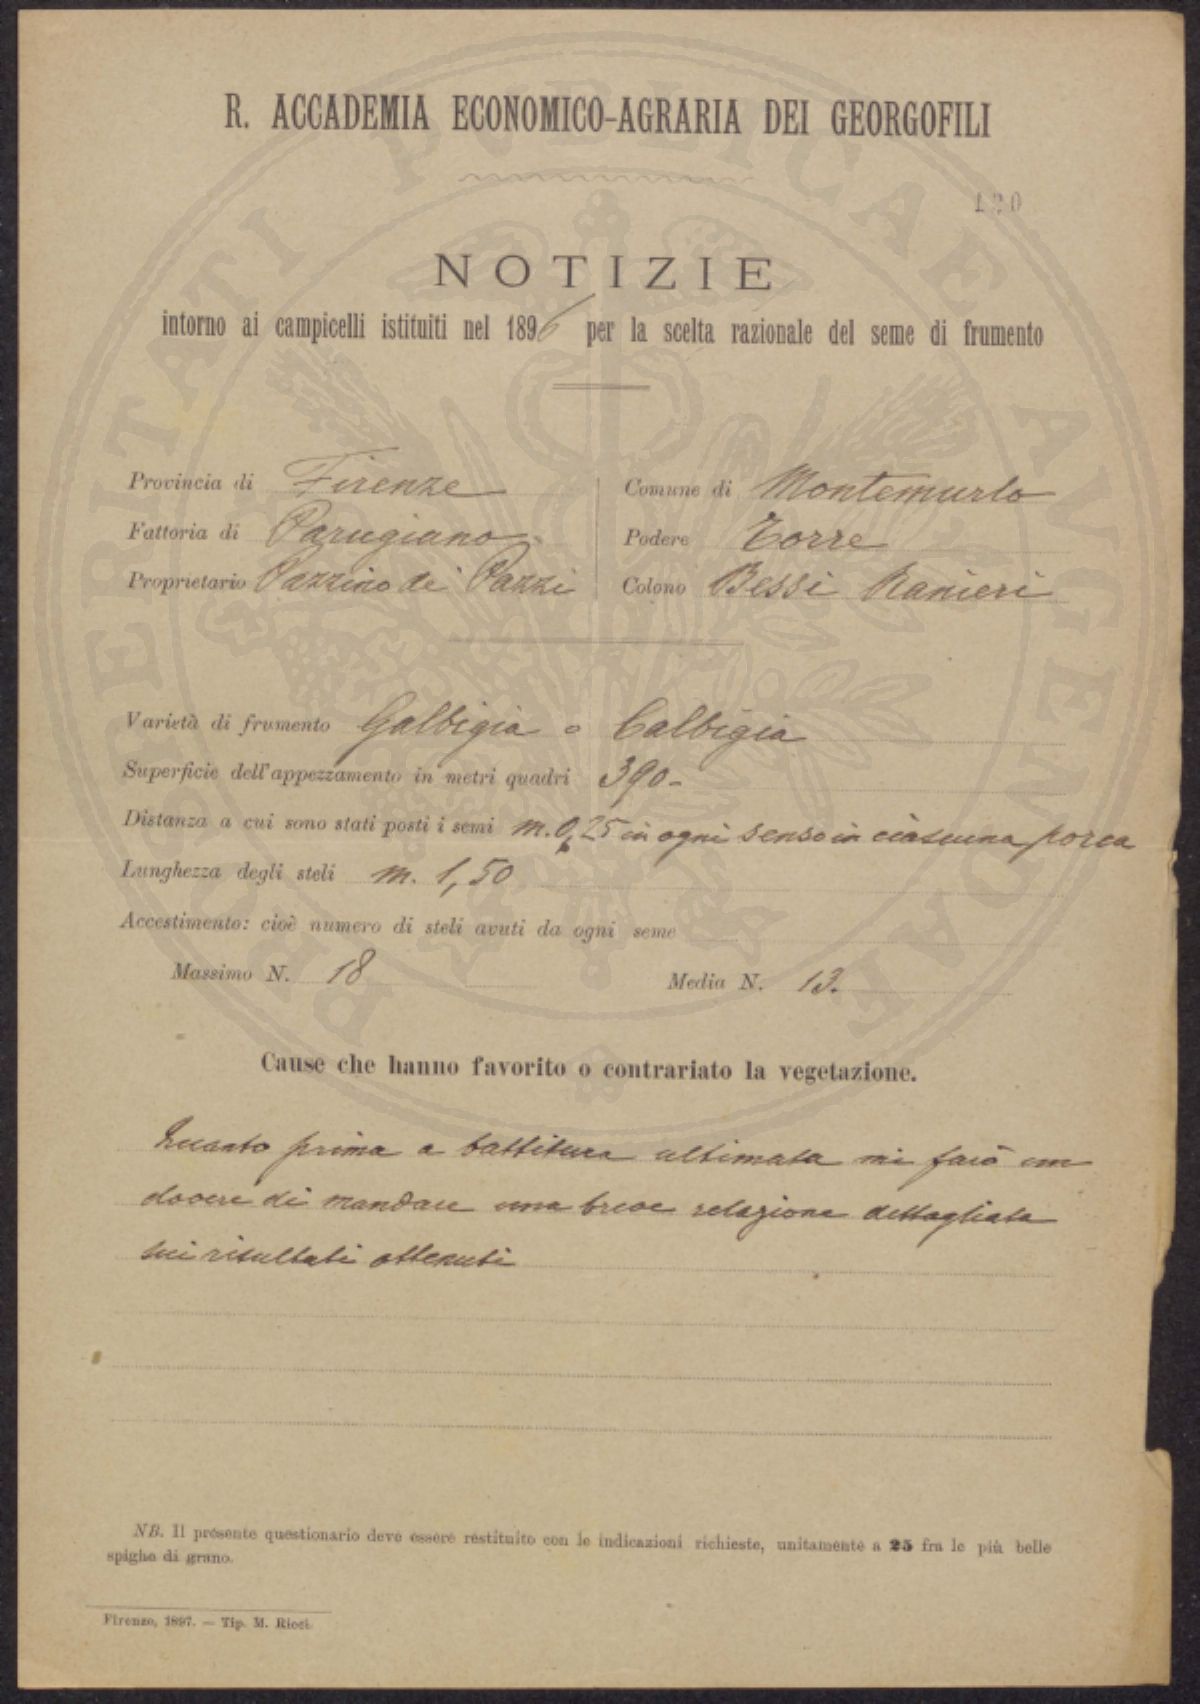 R. ACCADEMIA ECONOMICO-AGRARIA DEI GEORGOFILI
120
NOTIZIE
intorno ai campicelli istituiti nel 1896 per la scelta razionale del seme di frumento
Provincia di Firenze
Comune di Montemurlo
Fattoria di Parugiano
Podere Torre
Proprietario Pazzino de' Pazzi
Colono Bessi Ranieri
Varietà di frumento Galbigia o Calbigia
Superficie dell'appezzamento in metri quadri 390-
Distanza a cui sono stati posti i semi m. 0,25 in ogni senso in ciascuna porca
Lunghezza degli steli m. 1,50
Accestimento: cioè numero di steli avuti da ogni seme
Massimo N. 18 Media N. 13.
Cause che hanno favorito o contrariato la vegetazione.
Quanto prima a battitura ultimata mi farò un
dovere di mandare una breve relazione dettagliata
sui risultati ottenuti
NB. Il presente questionario deve essere restituito con le indicazioni richieste, unitamente a 25 fra le più belle
spighe di grano.
Firenze, 1897. — Tip. M. Ricci.
PROSPERITATI PUBLICAE AUGENDAE